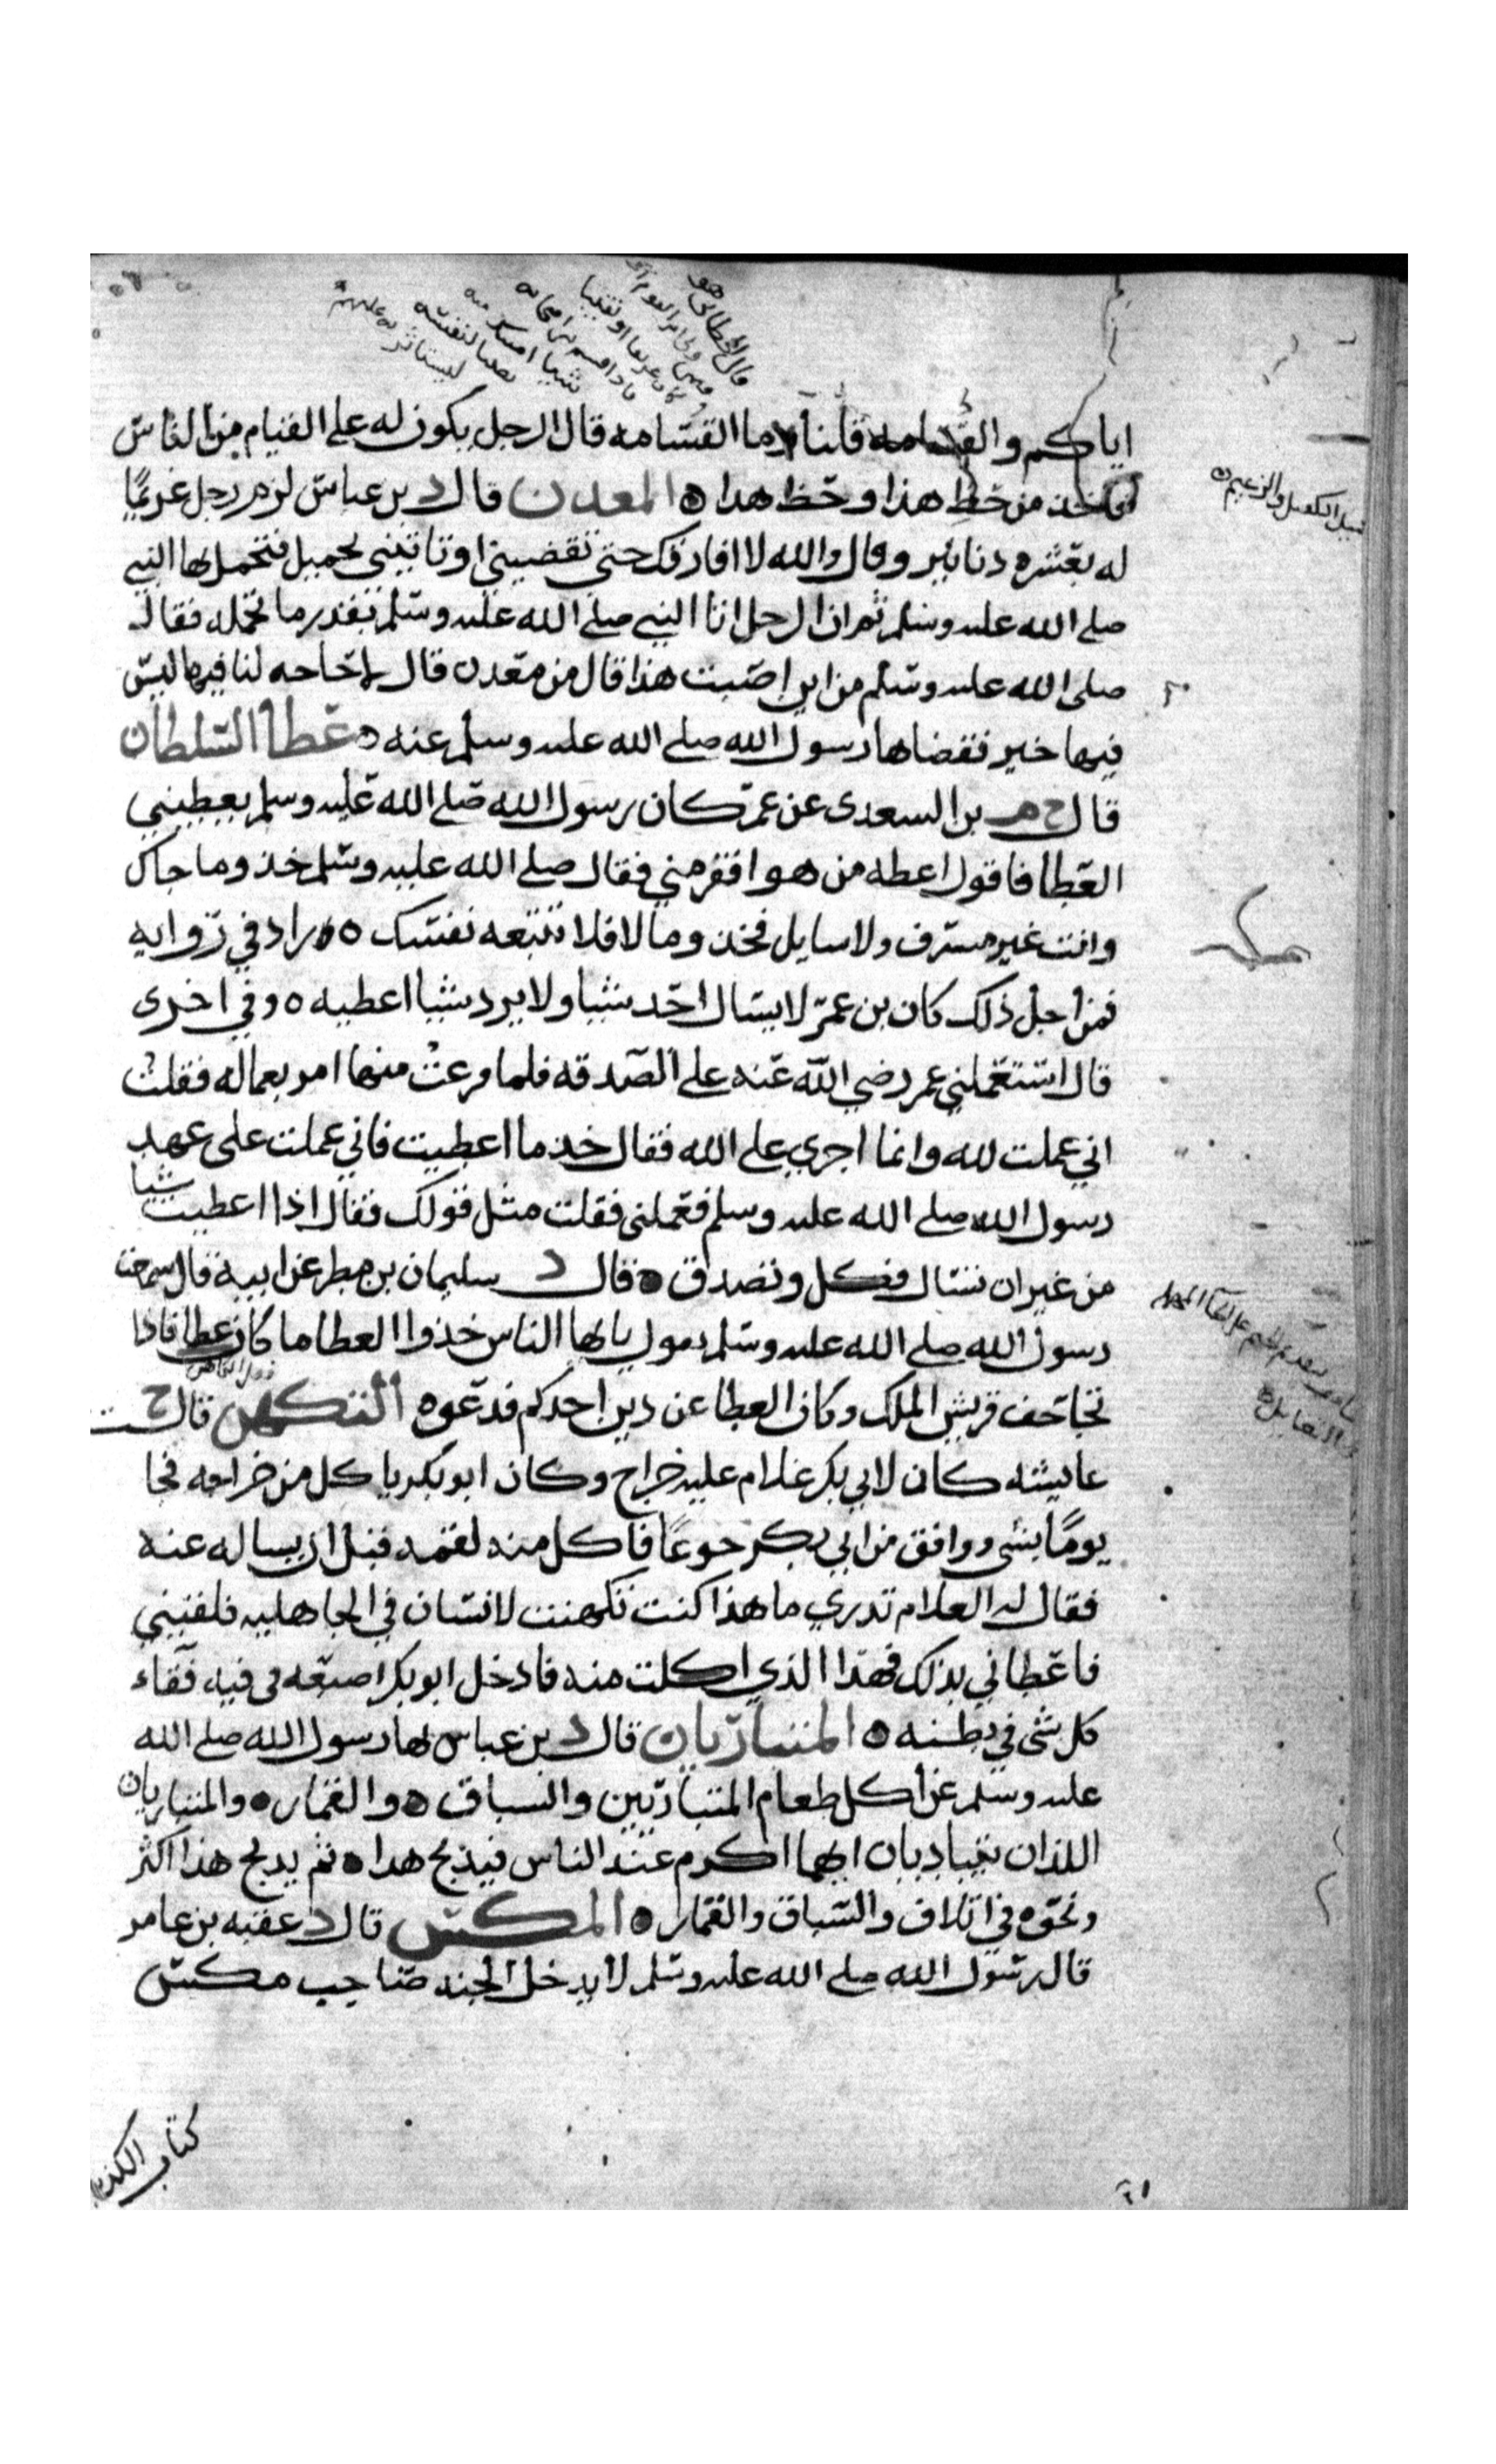 اياكم والقسامه قلنا وما القسامه قال الرجل يكون له على الفيام من الناس
فياخذ من حظ هذا وحظ هدا ه المعدن قال د بن عباس لزم رجل غريمًا
له بعشره دنانير وقال والله لا افارقك حتى تقضيني او تاتيني بحميل فتحمل لها النبي
صلى الله عليه وسلم ثم ان الرجل اتا النبي صلى الله عليه وسلم بقدر ما تحمله فقال
صلى الله عليه وسلم من اين اصبت هذا قال من معدن قال لا حاجه لنا فيها ليس
فيها خير فقضاها رسول الله صلى الله عليه وسلم عنه ه عطا السلطان
قال خ م بن السعدى عن عمر كان رسول الله صلى الله عليه وسلم يعطيني
العطا فاقول اعطه من هو افقر مني فقال صلى الله عليه وسلم خذ وما جاك
وانت غير مشرف ولا سايل فخذ ومالا فلا تتبعه نفسك ه زاد في روايه
فمن أجل ذلك كان بن عمر لا يسال احد شيا ولا يرد شيا اعطيه ه وفي اخرى
قال استعملني عمر رضي الله عنه على الصدقه فلما فرغت منها امر بعماله فقلت
اني عملت لله وانما اجري على الله فقال خذ ما اعطيت فاني عملت على عهد
رسول الله صلى الله عليه وسلم فعملني فقلت مثل قولك فقال اذا اعطيت شيا
من غير ان تسال فكل وتصدق ه قال د سليمان بن مطر عن ابيه قال سمعت
رسول الله صلى الله عليه وسلم يقول يايها الناس خذوا العطا ما كان عطا فاذا
تجاحف قريش الملك وكان العطا عن دين احدكم فدعوه التكهن قال خ ت
عايشه كان لابي بكر غلام عليه خراج وكان ابو بكر ياكل من خراجه فجا
يومًا بشي ووافق من ابي بكر جوعًا فاكل منه لقمه قبل ان يساله عنه
فقال له الغلام تدري ما هذا كنت تكهنت لانسان في الجاهليه فلقيني
فاعطاني بذلك فهذا الذي اكلت منه فادخل ابو بكر اصبعه في فيه فقاء
كل شى في بطنه ه المتباريان قال د بن عباس نها رسول الله صلى الله
عليه وسلم عن أكل طعام المتباريين والسباق ه والقمار ه والمتباريان
اللذان يتباريان ايهما اكرم عند الناس فيذبح هدا ه ثم يدبح هذا اكثر
ونحوه في اتلاف والسباق والقمار ه المكس قال د عقبه بن عامر
قال رسول الله صلى الله عليه وسلم لا يدخل الجنه صاحب مكس
كتاب